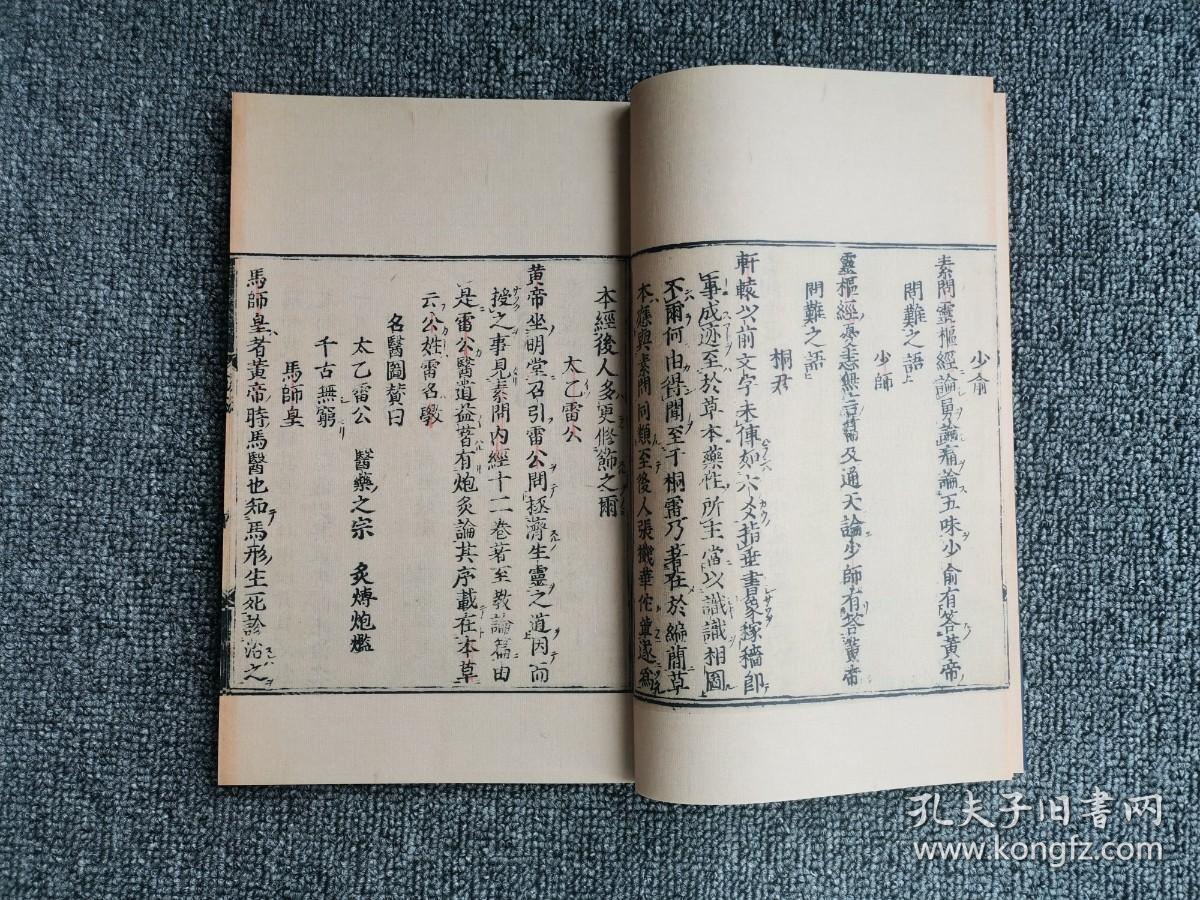 少俞
素問靈樞經論勇論痛論五味少俞有答黃帝
問難之語
少師
靈樞經憂恚無言篇及通天論少師有答黃帝
問難之語
桐君
軒轅以前文字未傳如六爻指垂畫象稼穡即
事成迹至於草本藥性所主當以識識相因
不爾何由得聞至于桐雷乃著在於編簡草
本應與素問同類至後人張機華佗軰遂為
本經後人多更修飾之爾
太乙雷公
黃帝坐明堂召引雷公問拯濟生靈之道因而
授之事見素問內經十二卷著至教論篇由
是雷公醫道益著有炮炙論其序載在本草
云公姓雷名斆
名醫圖贊曰
太乙雷公 醫藥之宗 炙煿炮爁
千古無窮
馬師皇
馬師皇者黃帝時馬醫也知馬形生死診治之
孔夫子旧书网
www.kongfz.com